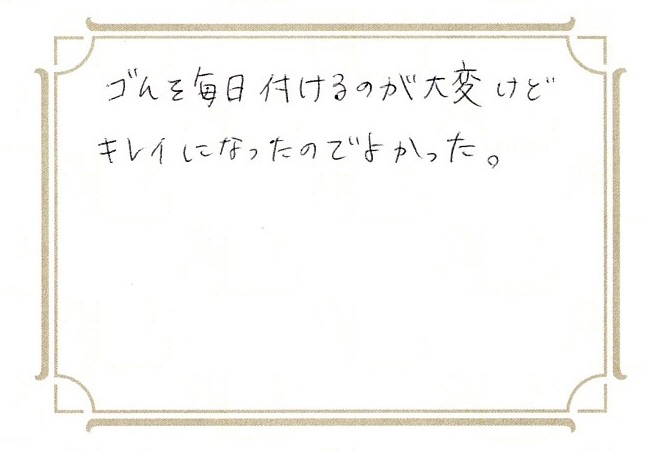 ゴムを毎日付けるのが大変けど
キレイになったのでよかった。